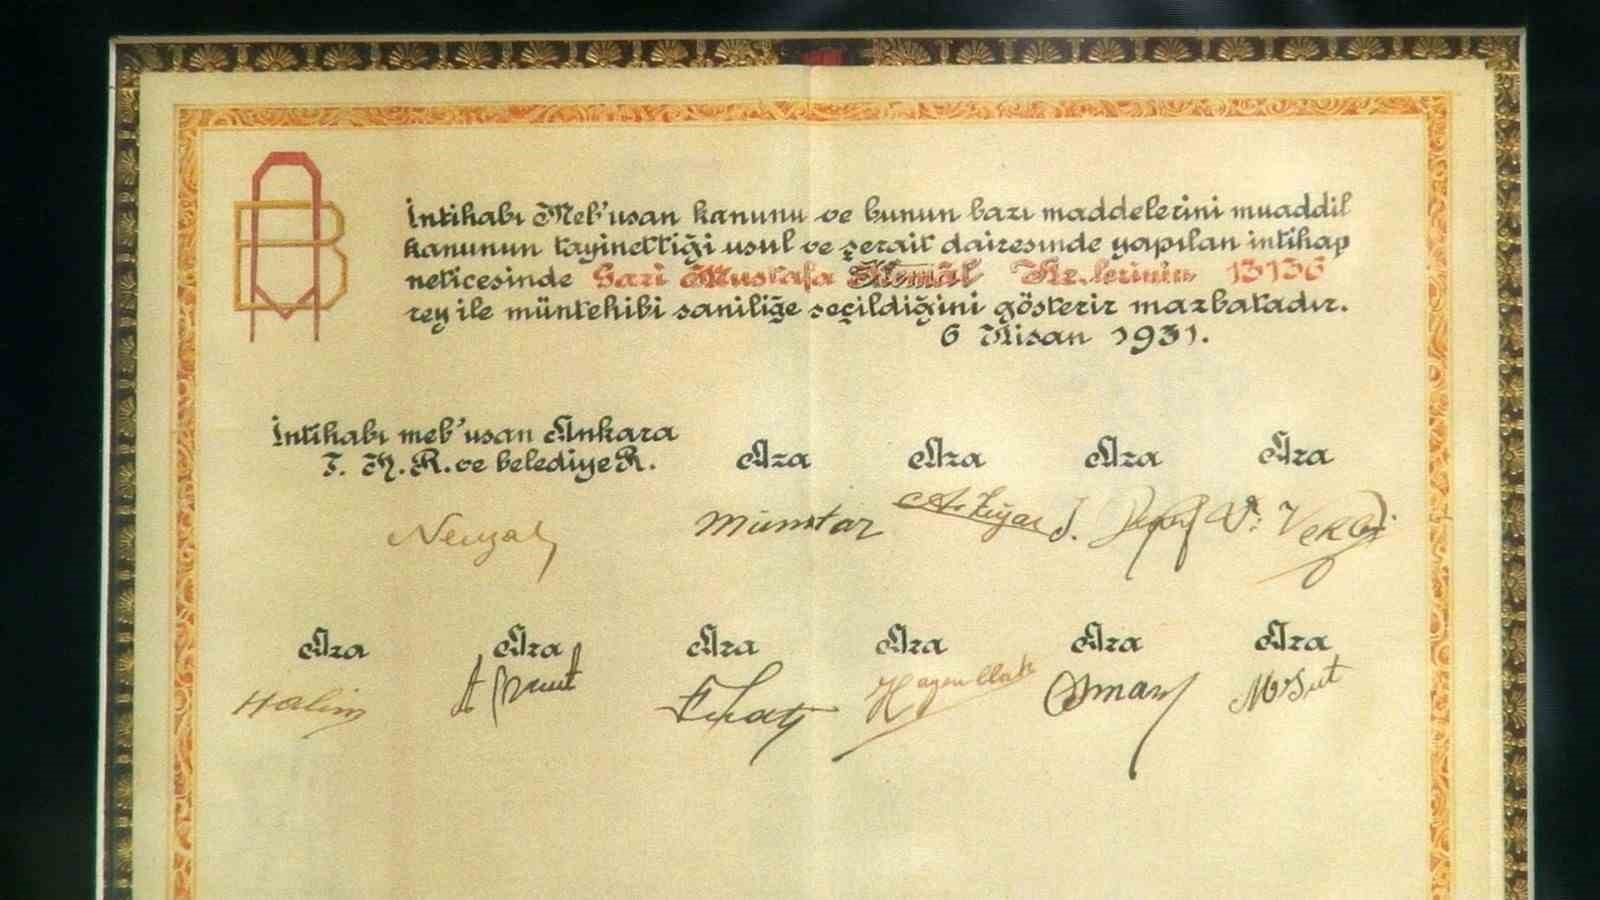 İntihabı Meb'usan kanunu ve bunun bazı maddelerini muaddil
kanunun tayinettiği usul ve şerait dairesinde yapılan intihap
neticesinde Gazi Mustafa Kemâl Hz.lerinin 13136
rey ile müntehibi saniliğe seçildiğini gösterir mazbatadır.
6 Nisan 1931.
İntihabı meb'usan Ankara
T. H. R. ve belediye R.
Aza Aza Aza Aza
Nevzat Mümtaz
Aza Aza Aza Aza Aza Aza
Halim Hayrullah Osman